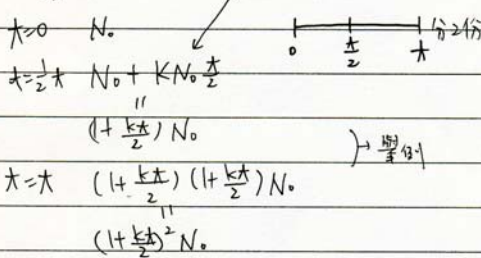 t=0 N₀
0 t/2 t 分2份
t=½t N₀ + KN₀ t/2
||
(1 + kt/2) N₀
舉例
t=t (1 + kt/2)(1 + kt/2) N₀
||
(1 + kt/2)² N₀